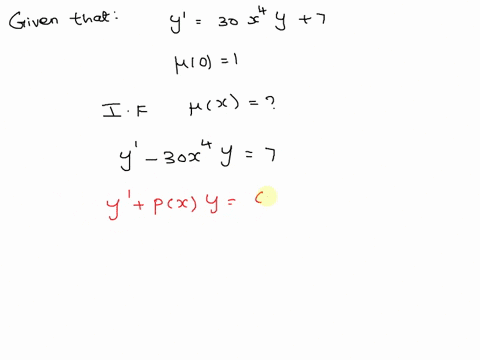 Given that: y' = 30 x⁴ y + 7
μ(0) = 1
I.F μ(x) = ?
y' - 30x⁴ y = 7
y' + p(x) y =